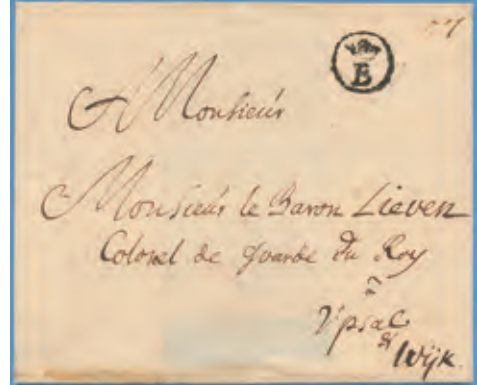 B
A Monsieur
Monsieur le Baron Lieven
Colonel de Guarde du Roy
à
Upsal
&
Wijk.